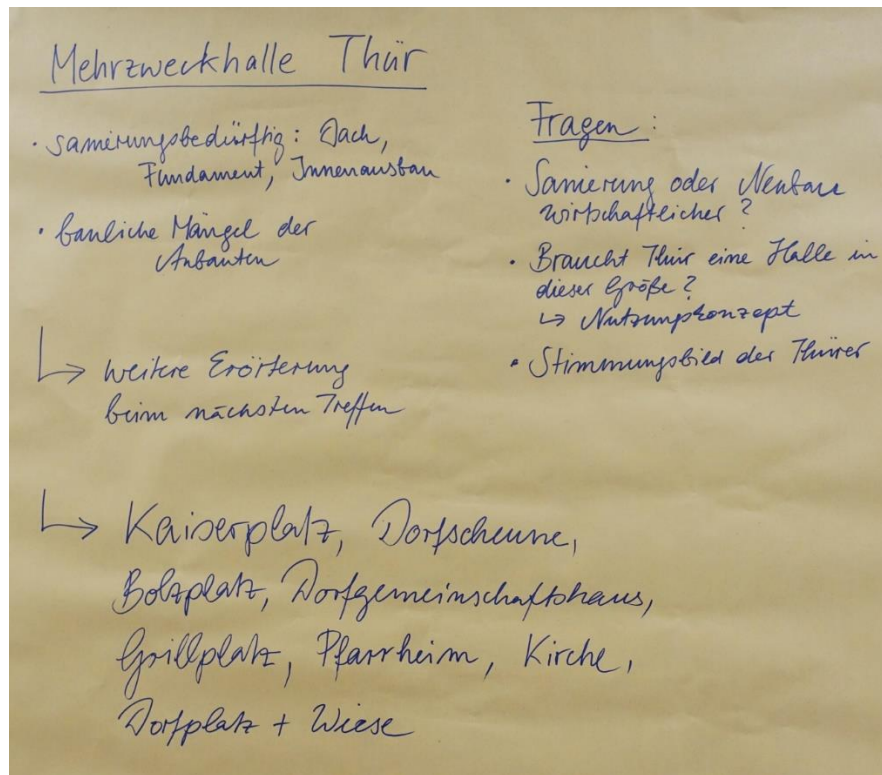 Mehrzweckhalle Thür
· sanierungsbedürftig: Dach,
Fundament, Innenausbau
· bauliche Mängel der
Anbauten
↳ weitere Erörterung
beim nächsten Treffen
Fragen:
· Sanierung oder Neubau
wirtschaftlicher?
· Braucht Thür eine Halle in
dieser Größe?
↳ Nutzungskonzept
· Stimmungsbild der Thürer
↳ Kaiserplatz, Dorfscheune,
Bolzplatz, Dorfgemeinschaftshaus,
Grillplatz, Pfarrheim, Kirche,
Dorfplatz + Wiese